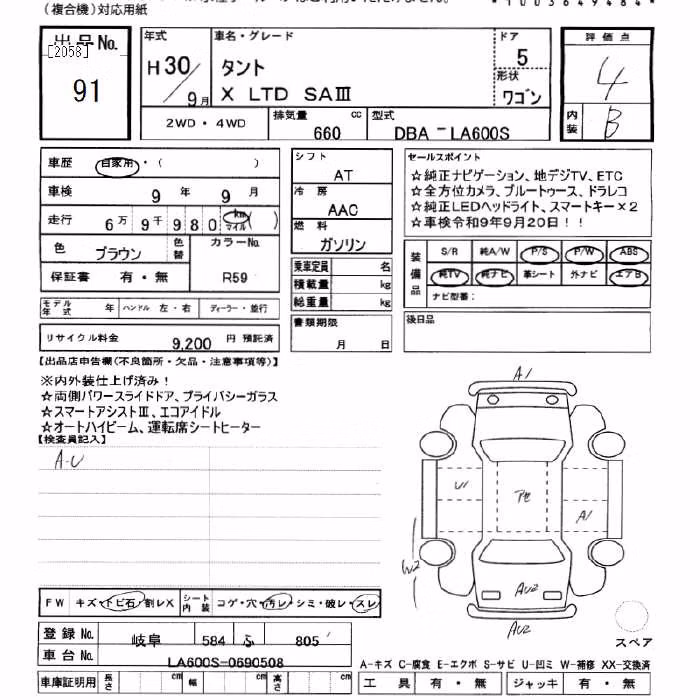 (複合機)対応用紙
*1003649484*
出品No.
[2058]
91
年式
H30/9月
車名・グレード
タント
X LTD SAⅢ
ドア
5
形状
ワゴン
評価点
4
内装
B
2WD・4WD
排気量
660 cc
型式
DBA-LA600S
車歴 自家用・( )
車検 9年 9月
走行 6万9千980 km マイル ( )
色 ブラウン 色替
カラーNo.
R59
保証書 有・無
モデル年式 年 ハンドル 左・右 ディーラー・並行
リサイクル料金 9,200 円 預託済
シフト
AT
冷房
AAC
燃料
ガソリン
乗車定員 名
積載量 kg
総重量 kg
書類期限
月 日
セールスポイント
☆純正ナビゲーション、地デジTV、ETC
☆全方位カメラ、ブルートゥース、ドラレコ
☆純正LEDヘッドライト、スマートキー×2
☆車検令和9年9月20日!!
装備品
S/R 純A/W P/S P/W ABS
純TV 純ナビ 革シート 外ナビ エアB
ナビ型番:
後日品
【出品店申告欄(不良箇所・欠品・注意事項等)】
※内外装仕上げ済み!
☆両側パワースライドドア、プライバシーガラス
☆スマートアシストⅢ、エコアイドル
☆オートハイビーム、運転席シートヒーター
【検査員記入】
A-U
A1
U1
A1
W2
AU2
AU2
スペア
FW キズ・トビ石・割レX シート内装 コゲ・穴・汚レ・シミ・破レ・スレ
登録No. 岐阜 584 ふ 805
車台No. LA600S-0690508
車庫証明用 長さ cm 幅 cm 高さ cm
A-キズ C-腐食 E-エクボ S-サビ U-凹ミ W-補修 XX-交換済
工具 有・無 ジャッキ 有・無